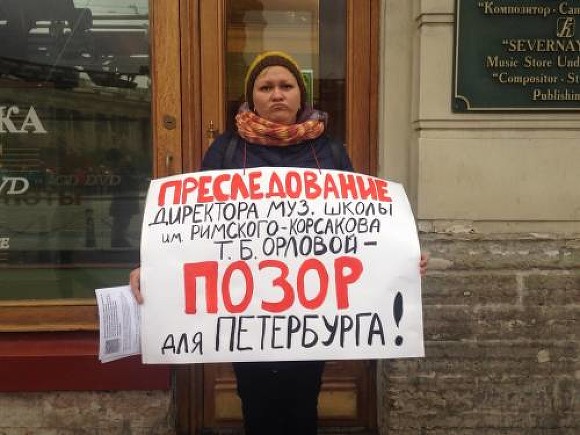 "Композитор - Сан
"SEVERNAY
Music Store Und
"Compositor - S
Publishin
КА
DVD
CD DVD
ПРЕСЛЕДОВАНИЕ
ДИРЕКТОРА МУЗ. ШКОЛЫ
ИМ. РИМСКОГО-КОРСАКОВА
Т. Б. ОРЛОВОЙ –
ПОЗОР
ДЛЯ ПЕТЕРБУРГА!